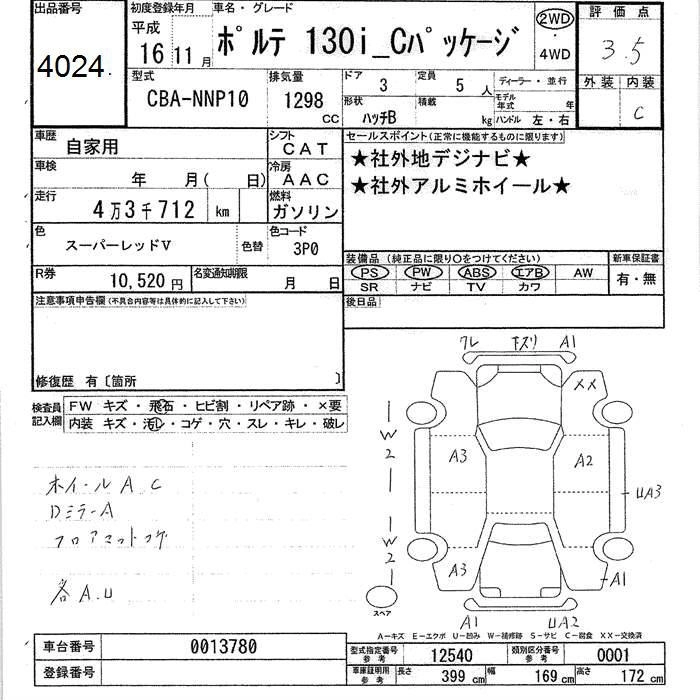 出品番号
4024
初度登録年月
平成
16 11 月
車名・グレード
ポルテ 130i_Cパッケージ
2WD
・
4WD
評価点
3.5
外装 内装
C
型式
CBA-NNP10
排気量
1298
CC
ドア
3
定員
5 人
ディーラー・並行
モデル年式 年
形状
ハッチB
積載
kg
ハンドル 左・右
車歴
自家用
シフト
CAT
車検
年 月( 日)
冷房
AAC
走行
4万3千712 km
燃料
ガソリン
色
スーパーレッドV
色替
色コード
3P0
R券
10,520 円
名変通知期限
月 日
セールスポイント(正常に機能するものに限ります)
★社外地デジナビ★
★社外アルミホイール★
装備品(純正品に限り○をつけてください)
PS PW ABS エアB AW
SR ナビ TV カワ
新車保証書
有・無
注意事項申告欄(不具合内容等は具体的に記入して下さい)
後日品
修復歴 有〔箇所 〕
検査員記入欄
FW キズ・飛石・ヒビ割・リペア跡・×要
内装 キズ・汚レ・コゲ・穴・スレ・キレ・破レ
ホイールA C
DミラーA
フロアマットコゲ
各A.U
ワレ キズリ A1
XX
W2
A3 A2
UA3
W2
A3
A1
スペア
A1 UA2
A－キズ E－エクボ U－凹み W－補修跡 S－サビ C－腐食 XX－交換済
車台番号
0013780
登録番号
型式指定番号
参考
12540
類別区分番号
参考
0001
車庫証明用
参考
長さ
399 cm
幅
169 cm
高さ
172 cm